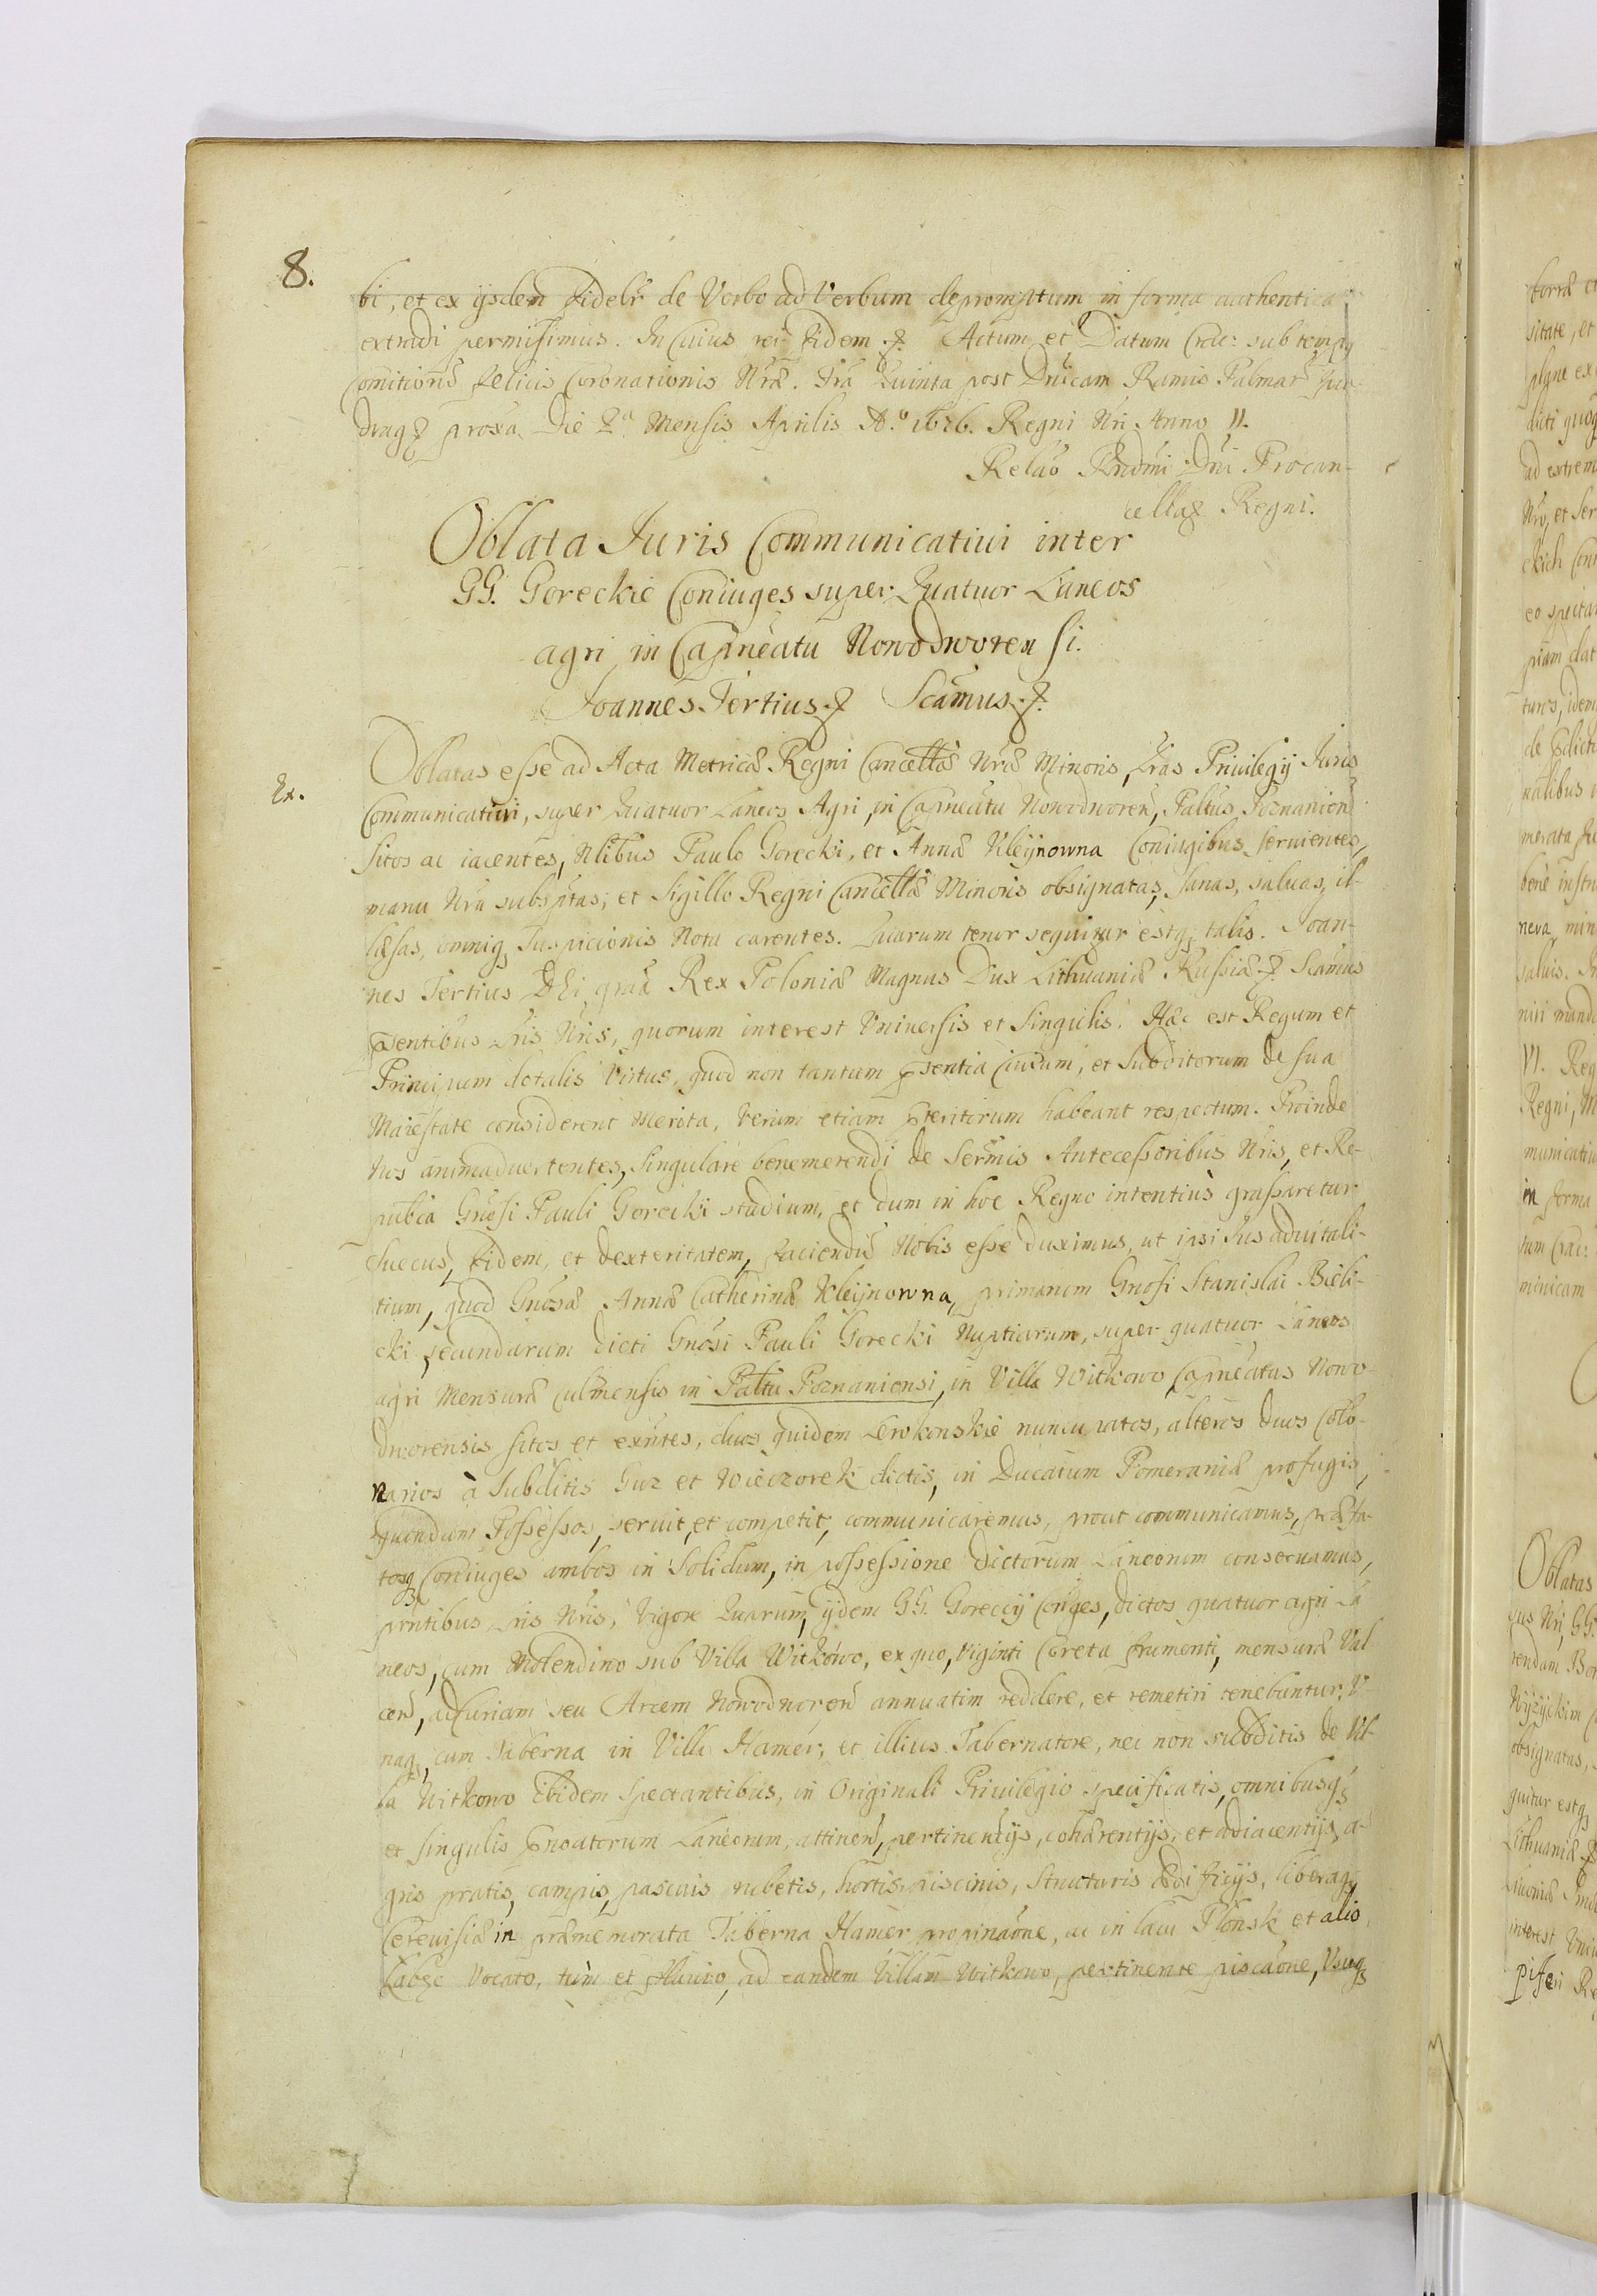 8.
bi, et ex ijsdem fidelr de Verbo ad Verbum depromptum in forma authentica
extradi permisimus. In Cuius rei fidem. Actum et Datum Crac: sub tempq
Comitiorũ felicis Coronationis Nrae. Fria Quinta post Dnicam Ramis Palmar
proxa Die 2a Mensis Aprilis Ao. 1676. Regni Nri Anno II.
Relao Rndmi Dni Procan-
cellar Regni.
Oblata Juris Communicatiui inter
GG. Goreckie Coniuges super Quatuor Laneos
agri in Capneatu Nowodworen si.
Joannes Tertius Scamus
Oblatas esse ad Acta Metricae Regni Cancellae Nrae Minoris, Lras Priuilegij Juris
Ex.
Communicatiui, super Quatuor Laneos Agri, in Capneatu Nowodworen, Paltus Poznanien
sitos ac iacentes, Nlibus Paulo Gorecki, et Annae Kleijnowna Coniugibus seruientes,
manu Nra subsptas, et Sigillo Regni Cancellae Minoris obsignatas, sanas, saluas, il-
laesas, omniq Suspicionis Nota carentes. Quarum tenor sequitur estq talis. Joan-
nes Tertius DEi gra Rex Poloniae Magnus Dux Lithuaniae Russiae Scamus
psentibus Lris Nris, quorum interest Vniuersis et Singulis. Haec est Regum et
Principum dotalis Virtus, quod non tantum psentia Ciuium, et Subditorum de sua
Maiestate considerent merita, verum etiam pteritorum habeant respectum. Proinde
Nos animaduertentes, singulare benemerendi de Sermis Antecessoribus Nris, et Re-
publca Gnosi Pauli Gorecki studium, et dum in hoc Regno intentius grassaretur
Suecus, fidem, et dexteritatem, faciendũ Nobis esse duximus, ut ipsi Jus aduitali-
tium, quod Gnosae Annae Catherinae Kleijnowna, primarum Gnosi Stanislai Bieli-
cki, secundarum dicti Gnosi Pauli Gorecki Nuptiarum, super quatuor Laneos
agri Mensurae Culmensis in Paltu Poznaniensi, in Villa Witkowo Capneatus Nowo-
dworensis sitos et exntes, duos quidem Lewkonskie nuncupatos, alteros duos Colo-
narios à Subditis Guz et Wieczorek dictis, in Ducatum Pomeraniae profugis,
quondam Possessos, seruit, et competit, communicaremus, prout communicamus, praefa-
tosq Coniuges ambos in Solidum, in possessione dictorum Laneorum conseruamus,
pntibus Lris Nris, Vigore Quarum, ijdem GG. Goreccij Conges, dictos quatuor agri La
neos, cum Molendino sub Villa Witkowo, ex quo, Viginti Coreta frumenti, mensurae Val-
cen, ad Curiam seu Arcem Nowodworen annuatim reddere, et remetiri tenebuntur; V-
naq cum Taberna in Villa Hamer, et illius Tabernatore, nec non subditis de Vil-
la Witkowo Ibidem Spectantibus, in Originali Priuilegio specificatis, omnibusq
et singulis pnoatorum Laneorum, attinen, pertinentijs, cohaerentijs, et adiacentijs, a-
gris pratis, campis, pascuis rubetis, hortis, piscinis, structuris aedificijs, liberaq
Cereuisiae in praememorata Taberna Hamer propinaone, ac in lacu Plonsk et alio
Labze Vocato, tum et fluuio, ad eandem Villam Witkowo, pertinente piscaone, Vsuq